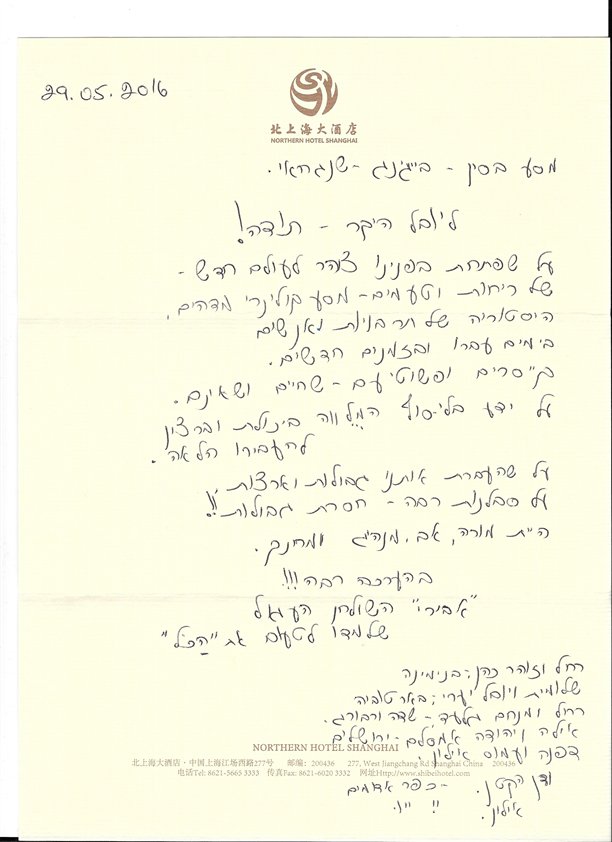 29.05.2016
北上海大酒店
NORTHERN HOTEL SHANGHAI
מסע בסין - בייג'ינג - שנגחאי.
ליובל היקר - תודה!
על שפתחת בפנינו צוהר לעולם חדש -
של ריחות וטעמים - מסע קולינרי מדהים.
היסטוריה של תרבויות ואנשים
בימים עברו ובזמנים חדשים.
קיסרים ופשוטי עם - שחיים ושאינם.
על ידע בלי-סוף המלווה ביכולת וברצון
להעבירו הלאה.
על שהעברת אותנו גבולות וארצות,
על סבלנות רבה - חסרת גבולות!!
היית מורה, אב, מנהיג ומחנך.
בהערכה רבה!!!
"אבירי" השולחן העגול
שלמדו לטעום את "הַכֹּל"
רחל וזוהר כהן; בנימינה
שלומית ויובל יערי; באר טוביה
רחל ומנחם גלעד - שדה ורבורג.
אילה ויהודה אמסלם - ירושלים
דפנה ועמוס אילון
NORTHERN HOTEL SHANGHAI
北上海大酒店 · 中国上海江场西路277号 邮编: 200436 277, West Jiangchang Rd Shanghai China 200436
电话Tel: 8621-5663 3333 传真Fax: 8621-6020 3332 网址Http://www.shibeihotel.com
ודן הקטן. - כפר אדומים
אילון.